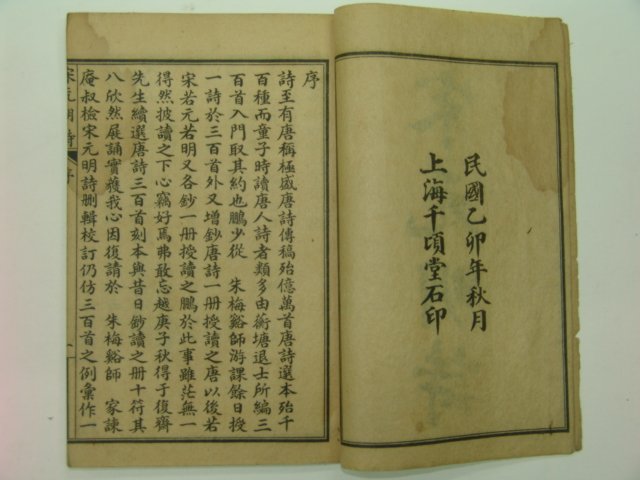 民國乙卯年秋月
上海千頃堂石印
序
詩至有唐稱極盛唐詩傳稿殆億萬首唐詩選本殆千
百種而童子時讀唐人詩者類多由蘅塘退士所編三
百首入門取其約也鵬少從 朱梅谿師游課餘日授
一詩於三百首外又增鈔唐詩一册授讀之唐以後若
宋若元若明又各鈔一册授讀之鵬於此事雖茫無一
得然披讀之下心竊好焉弗敢忘越庚子秋得于復齋
先生續選唐詩三百首刻本與昔日鈔讀之册十符其
八欣然展誦實獲我心因復請於 朱梅谿師 家諫
庵叔檢宋元明詩刪輯校訂仍仿三百首之例彙作一
宋元明詩 序 一